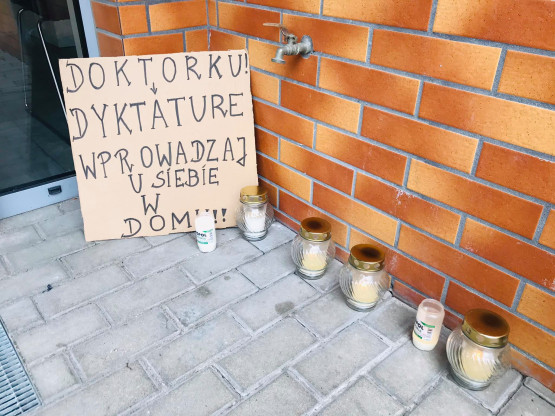 DOKTORKU!
DYKTATURE
WPROWADZAJ
U SIEBIE
W
DOMU!!!